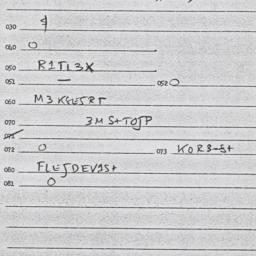 030
040 O
050 R1TL3X
051 — 052 O
060 M3KGESRT
070 3MS+TOJP
071
072 O 073 KOR8-S+
080 FLEJDEV1S+
081 O